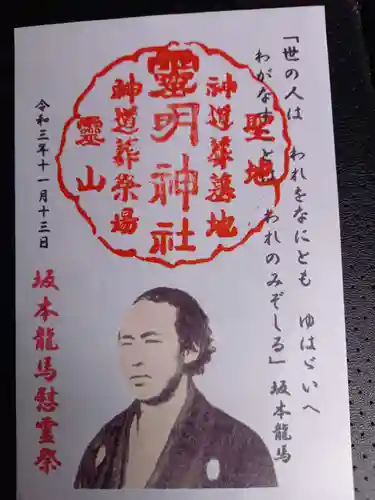 「世の人は　われをなにとも　ゆはゞいへ
わがなすことは　われのみぞしる」坂本龍馬
聖地
神道葬墓地
靈明神社
神道葬祭場
靈山
令和三年十一月十三日
坂本龍馬慰霊祭